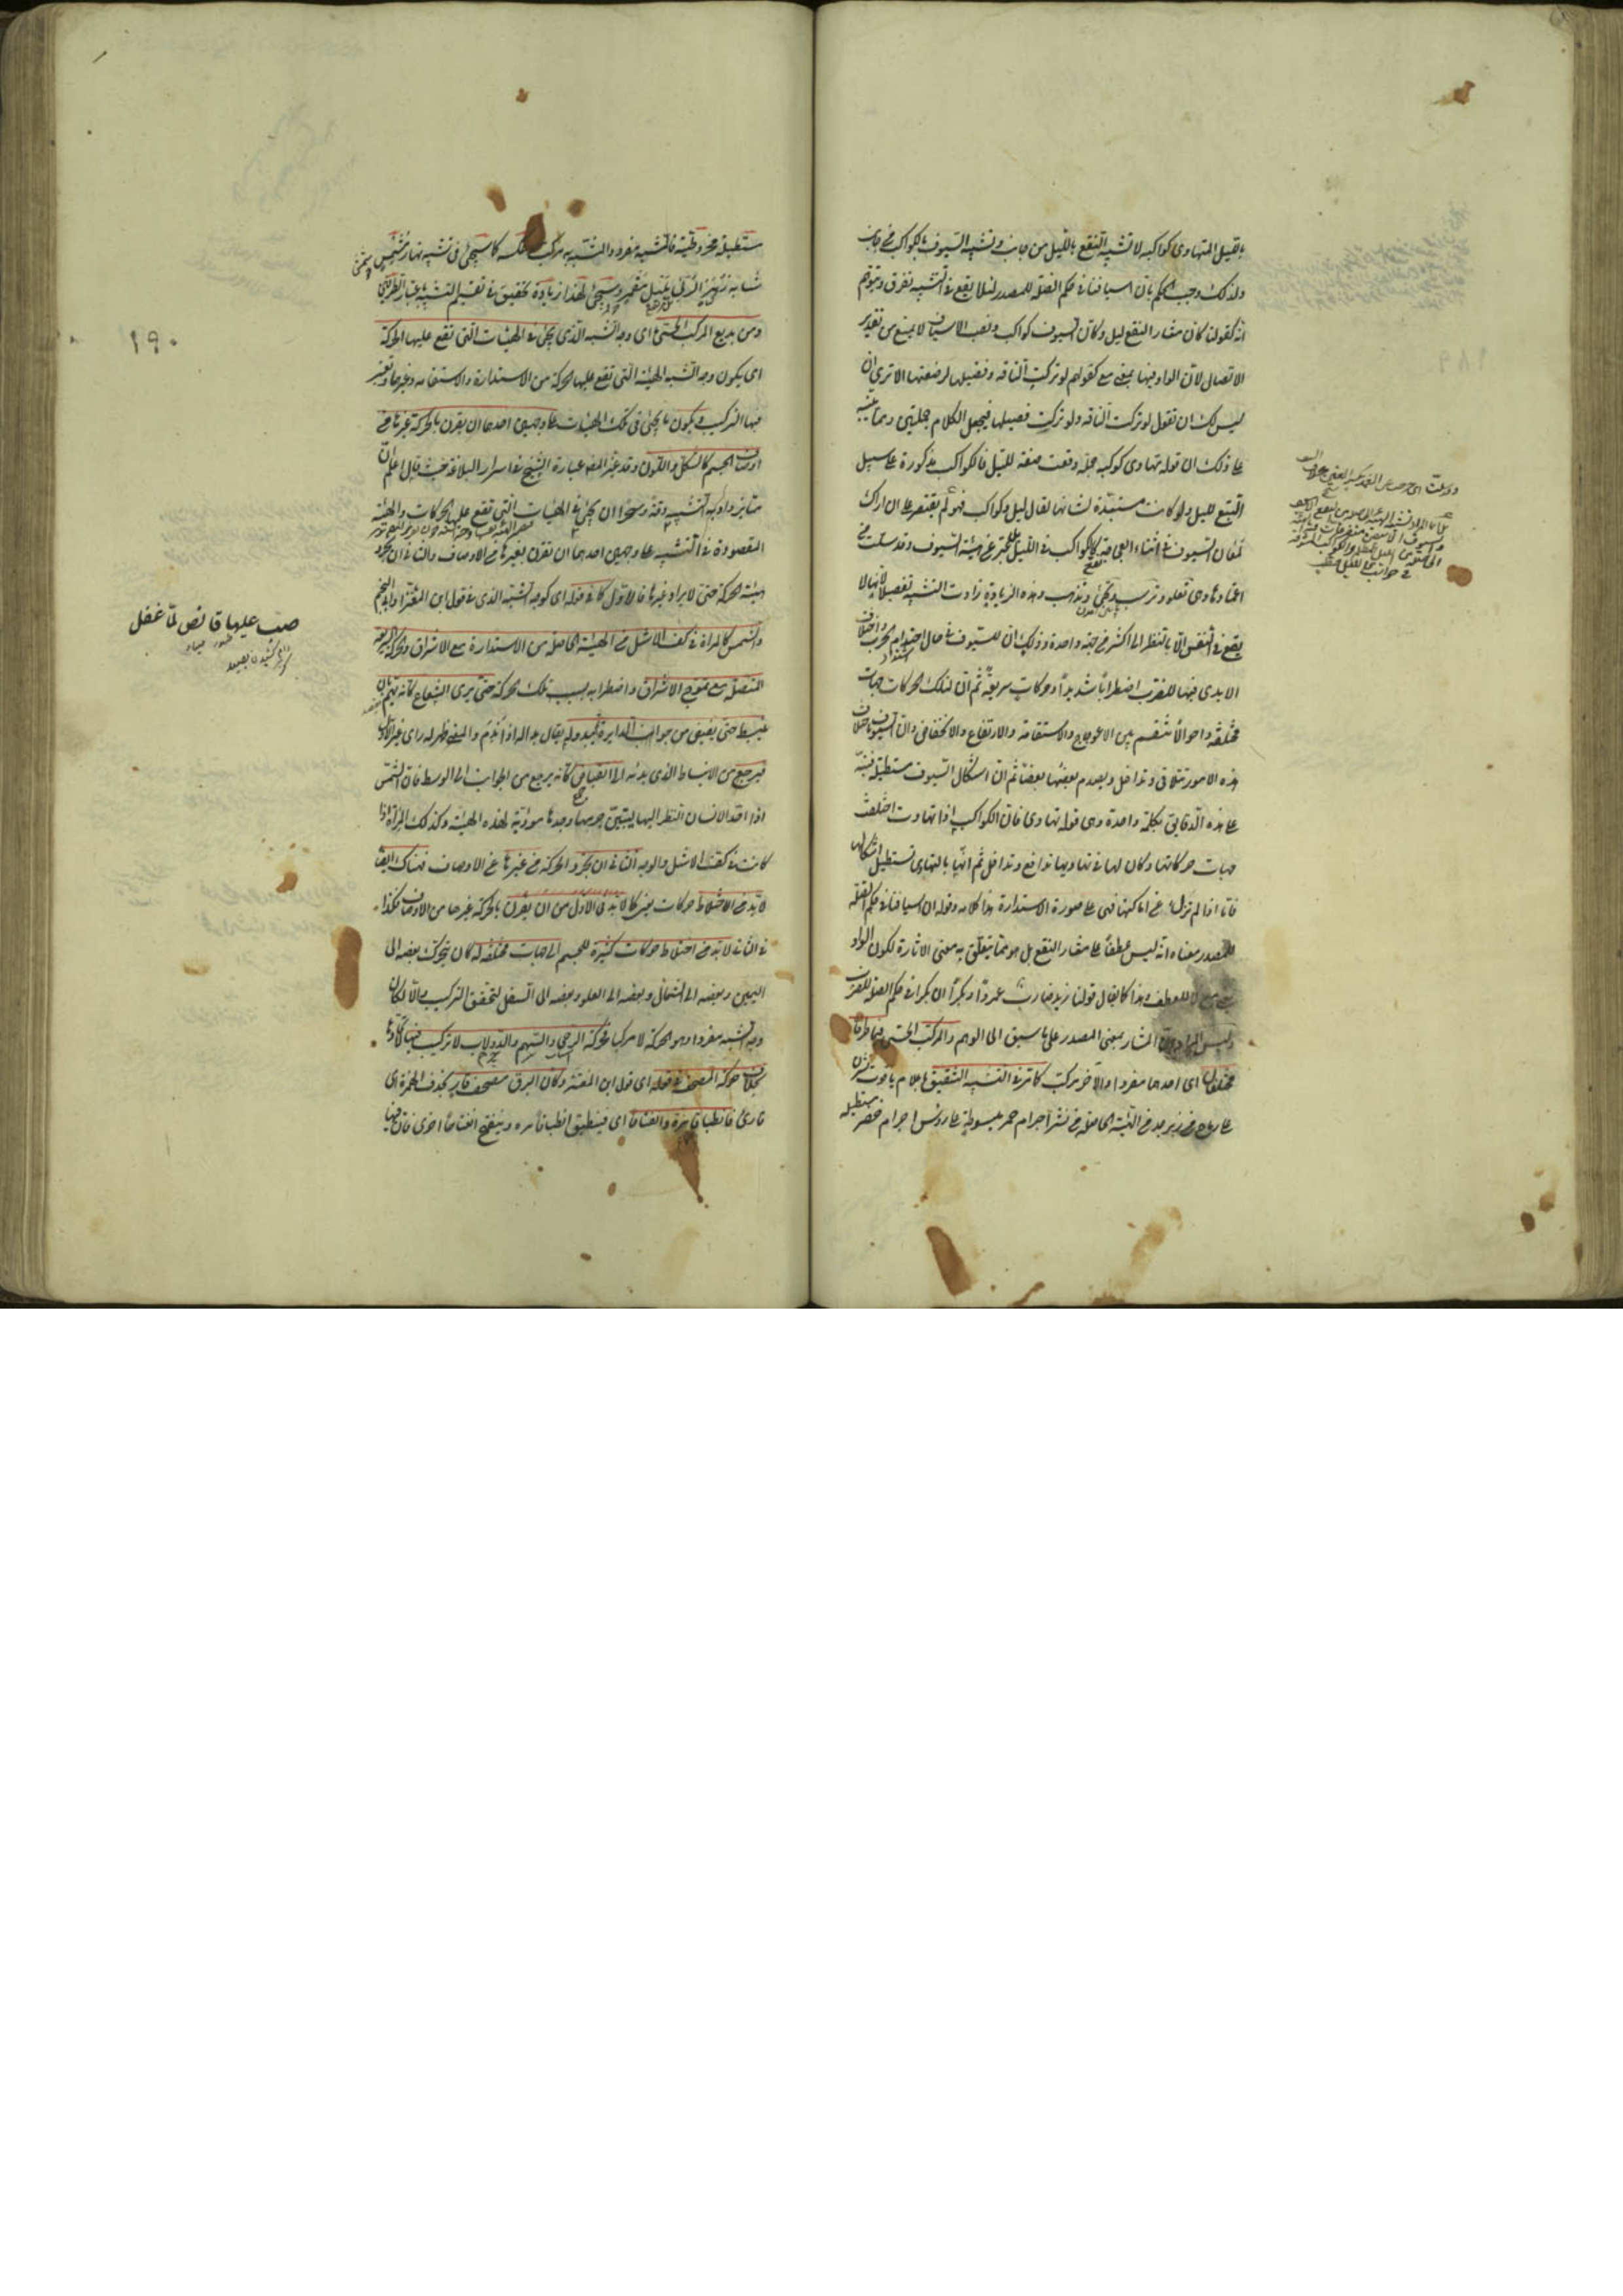 بالقيل المتهاوى كواكبه لا تشبيه النقع بالليل من جانب وتشبيه السيوف بالكواكب من جانب
ولذلك وجب الحكم بان اسيافنا فى حكم الصلة للمصدر لئلا يقع فى التشبيه تفرق ويتوهم
انه كقولنا كان مثار النقع ليل وكان السيوف كواكب ونصب الاسياف لا يمنع من تقدير
الاتصال لان الواو فيها بمعنى مع كقولهم لو تركت الناقة وفصيلها لرضعتها الا ترى ان
ليس لك ان تقول لو تركت الناقة ولو تركت فصيلها فيجعل الكلام جملتين ومما ينبه
على ذلك ان قوله تهاوى كوكبه جملة وقعت صفة لليل فالكواكب مذكورة على سبيل
التبع لليل ولو كانت مستبدة لشانها لقال ليل وكواكب فهو لم يقتصر على ان اراك
لمعان السيوف فى اثناء العجاجة كالكواكب فى الليل بل عبر عن هيئة السيوف وقد سلت من
اغمادها وهى تعلو وترسب وتجئ وتذهب وهذه الزيادة زادت التشبيه تفصيلا لانها لا
يقع فى النفس الا بالنظر الى اكثر من جهة واحدة وذلك ان للسيوف فى حال احتدام الحرب واختلاف
الايدى فيها للضرب اضطرابا شديدا وحركات سريعة ثم ان لتلك الحركات جهات
مختلفة واحوالا تنقسم بين الاعوجاج والاستقامة والارتفاع والانخفاض وان السيوف باختلاف
هذه الامور تتلاقى وتداخل ويصدم بعضها بعضا ثم ان اشكال السيوف مستطيلة فنبه
على هذه الدقايق بكلمة واحدة وهى قوله تهاوى فان الكواكب اذا تهاوت اختلفت
جهات حركاتها وكان لها فى تهاويها تدافع وتداخل ثم انها بالتهاوى تستطيل اشكالها
فاما اذا لم تزل عن اماكنها فهى على صورة الاستدارة هذا كلامه وقوله ان اسيافنا فى حكم الصلة
للمصدر معناه انه ليس عطفا على مثار النقع بل هو مما يتعلق به معنى الاثارة لكون الواو
بمعنى مع لا للعطف وهذا كما يقال قولنا زيد ضارب عمروا وبكرا ان بكرا فى حكم الصلة للضرب
وليس المراد ان المثار بمعنى المصدر على ما سبق الى الوهم والمركب الحسى فيما طرفاه
مختلفان اى احدهما مفرد والآخر مركب كما مر فى التشبيه الشقيق باعلام ياقوت نشرن
على رماح من زبرجد من الهيئة الحاصلة من نشر اجرام حمر مبسوطة على رؤس اجرام خضر مستطيلة
مستطيلة مخروطية فالمشبه مفرد والمشبه به مركب وعكسه كما سيجئ فى تشبيه نهار مشمس
شابه زهر الربى بليل مقمر وسيجئ لهذا زيادة تحقيق فى تقسيم التشبيه باعتبار الطرفين
ومن بديع المركب الحسى اى وجه الشبه الذى يجئ فى الهيئات التى تقع عليها الحركة
اى يكون وجه الشبه الهيئة التى تقع عليها الحركة من الاستدارة والاستقامة وغيرهما ويعتبر
فيها التركيب ويكون ما يجئ فى تلك الهيئات على وجهين احدهما ان يقرن بالحركة غيرها من
اوصاف الجسم كالشكل واللون وقد غير المصنف عبارة الشيخ فى اسرار البلاغة حيث قال اعلم ان
مما يزداد به التشبيه دقة وسحرا ان يجئ فى الهيئات التى تقع عليها الحركات والهيئة
المقصودة فى التشبيه على وجهين احدهما ان تقرن بغيرها من الاوصاف والثانى ان تجرد
هيئة الحركة حتى لا يراد غيرها فالاول كما فى قوله اى كوجه الشبه الذى فى قول ابن المعتز او ابى النجم
والشمس كالمرآة فى كف الاشل من الهيئة الحاصلة من الاستدارة مع الاشراق والحركة السريعة
المتصلة مع تموج الاشراق واضطرابه بسبب تلك الحركة حتى يرى الشعاع كانه يهم بان
ينبسط حتى يفيض من جوانب الدايرة ثم يبدو له يقال بدا له اذا ندم والمعنى ظهر له راى غير الاول
فيرجع من الانبساط الذى بدا له الى انقباض كانه يرجع من الجوانب الى الوسط فان الشمس
اذا احد الانسان النظر اليها ليتبين جرمها وجدها مؤدية لهذه الهيئة وكذلك المرآة اذا
كانت فى كف الاشل والوجه الثانى ان تجرد الحركة من غيرها من الاوصاف فهناك ايضا
لا بد من اختلاط حركات يعنى كما لا بد فى الاول من ان يقرن بالحركة غيرها من الاوصاف فكذا
فى الثانى لا بد من اختلاط حركات كثيرة للجسم الى جهات مختلفة له كان يتحرك بعضه الى
اليمين وبعضه الى الشمال وبعضه الى العلو وبعضه الى السفل لتحقق التركيب والا لكان
وجه الشبه مفردا وهو الحركة لا مركبا فحركة الرحى والسهم والدولاب لا تركيب فيها لاتحادها
بخلاف حركة المصحف فى قوله اى قول ابن المعتز وكان البرق مصحف قار بحذف الهمزة اى
قارئ فانطباقا مرة وانفتاحا اى فينطبق انطباقا مرة وينفتح انفتاحا اخرى فان فيها
١٩٠
صب عليها قانص لما غفل